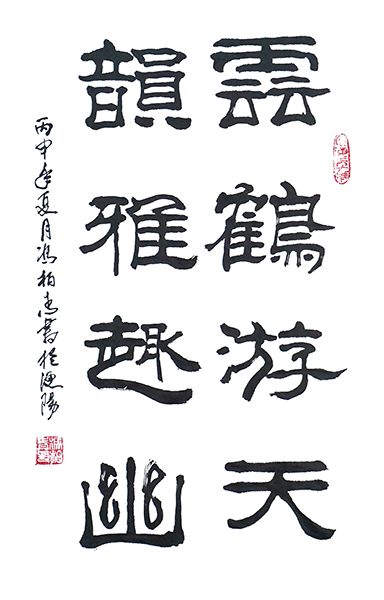 雲鶴游天
韻雅趣幽
丙申年夏月馮柏書於漁陽